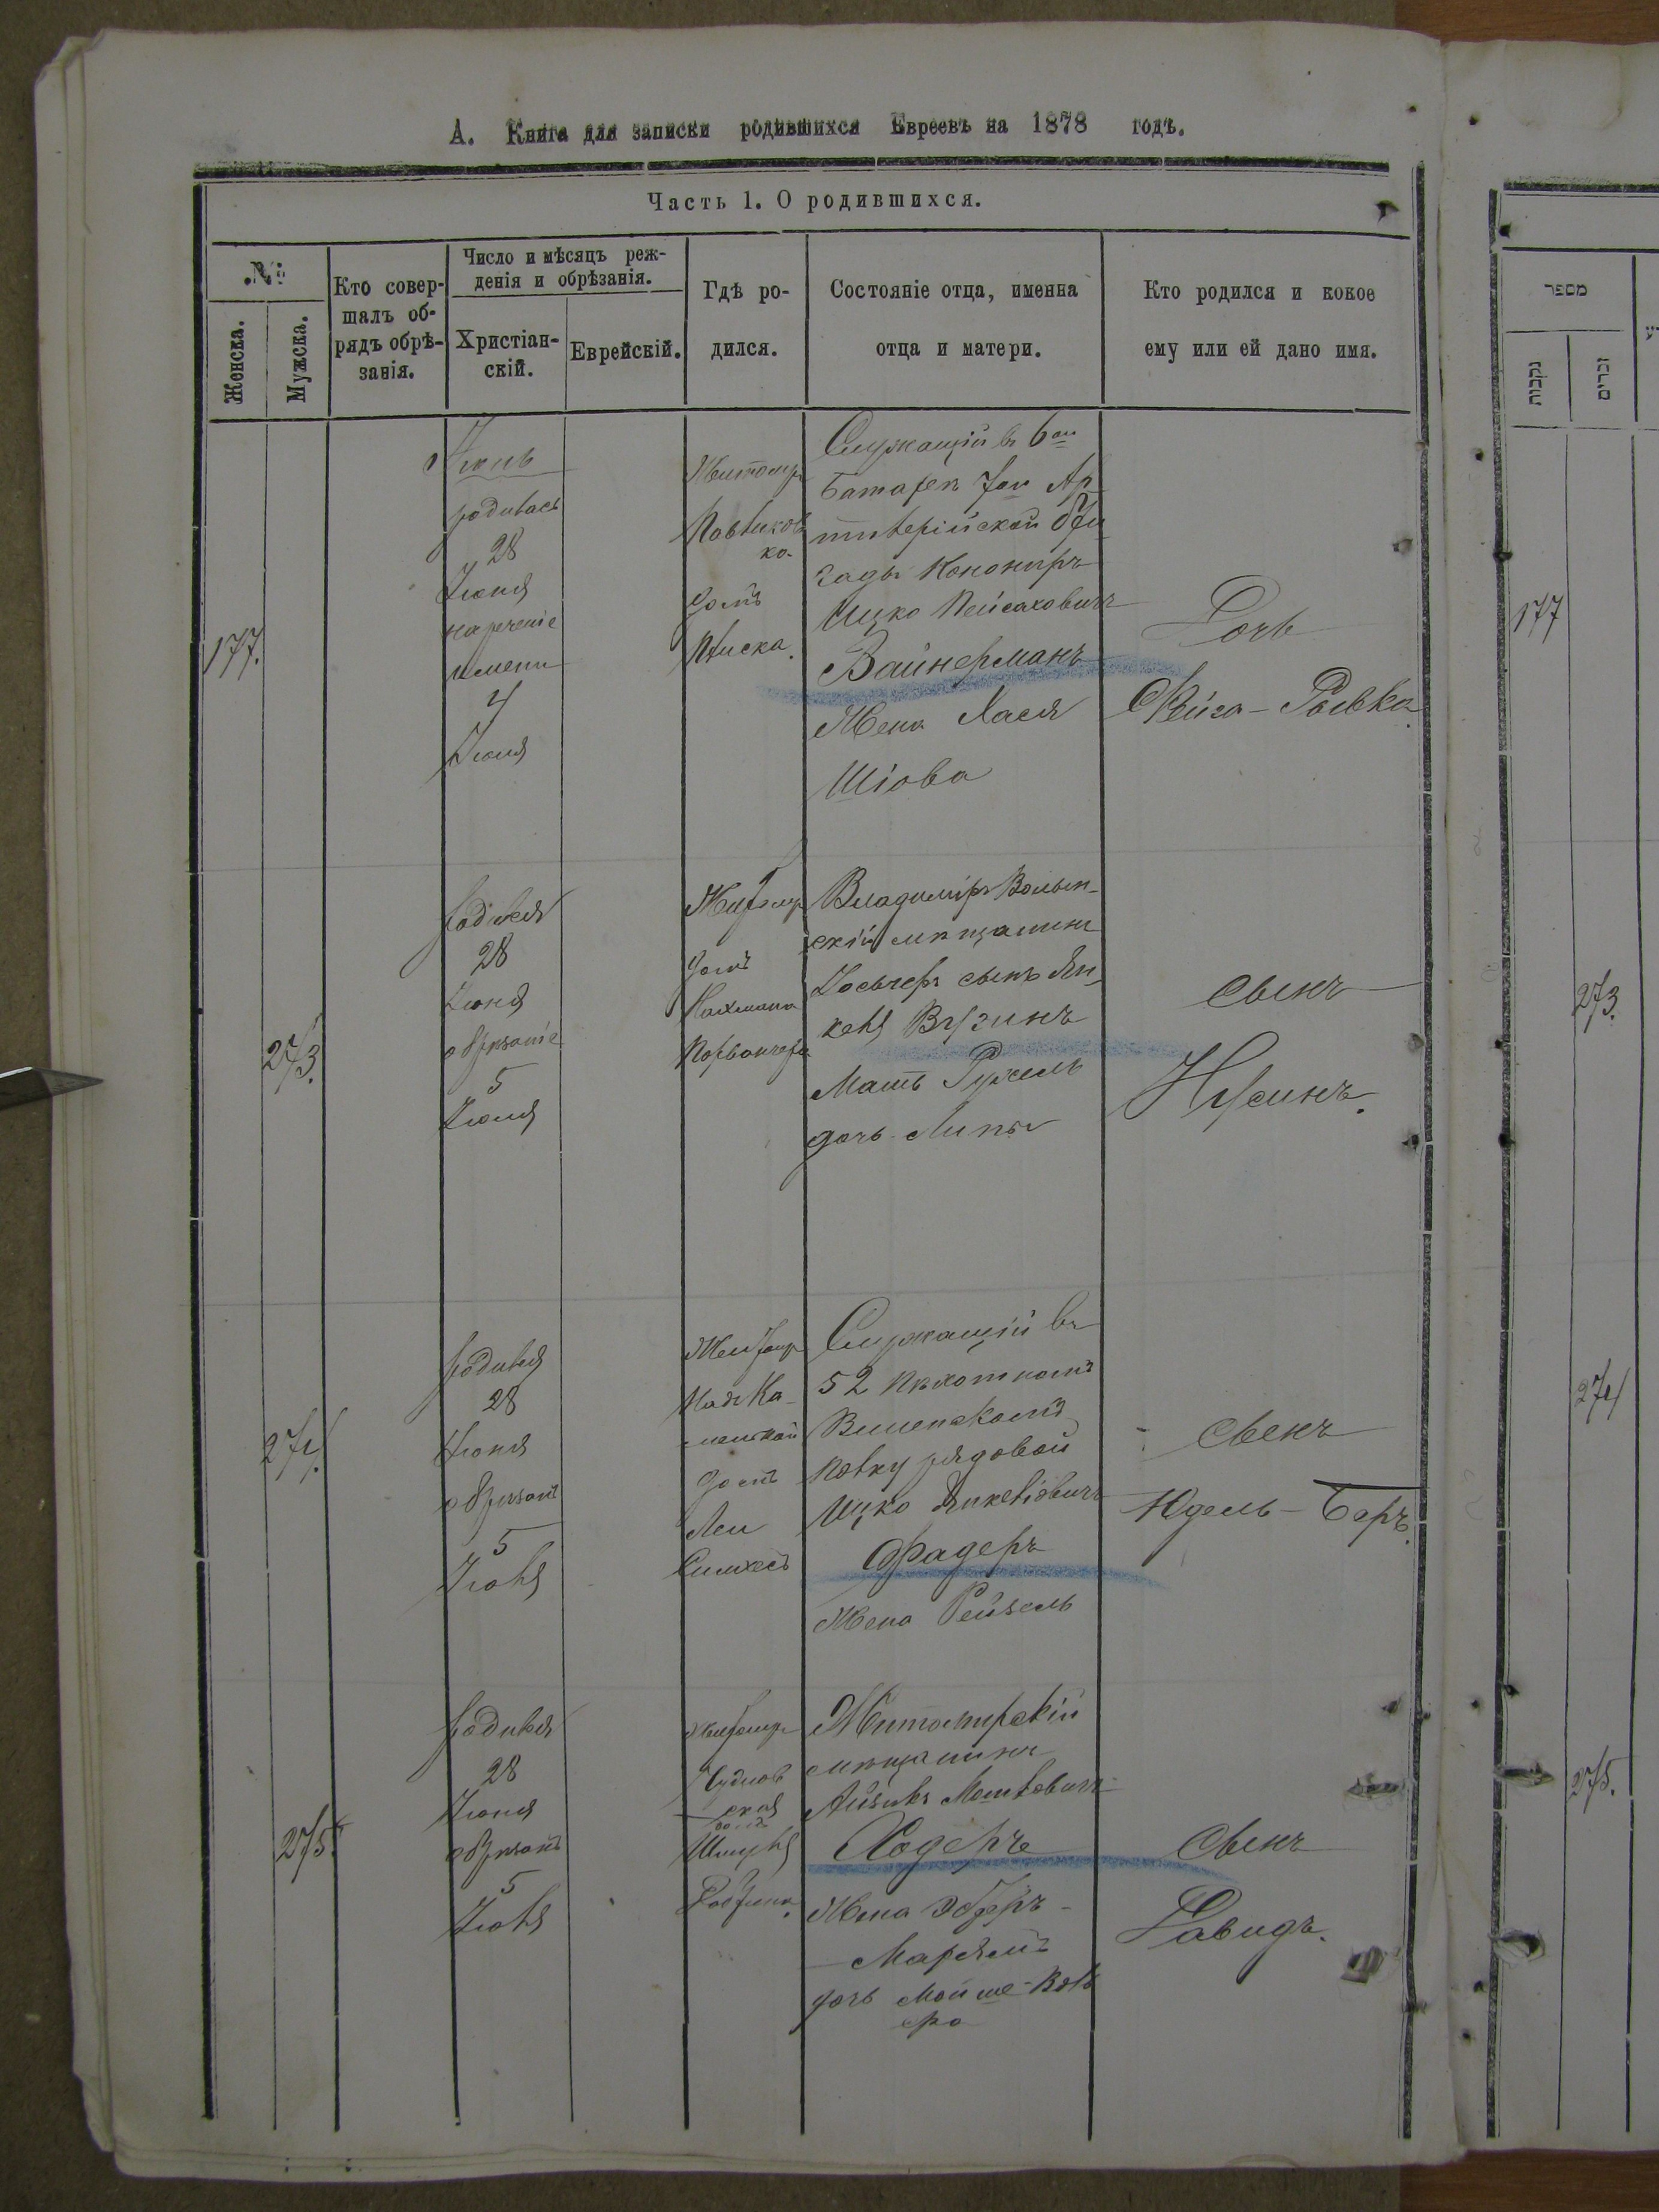 А. Книга для записки родившихся Евреевъ на 1878 годъ.
Часть 1. О родившихся.
№
Женска.
Мужска.
Кто совер-
шалъ об-
рядъ обрѣ-
занія.
Число и мѣсяцъ реж-
денія и обрѣзанія.
Христіан-
скій.
Еврейскій.
Гдѣ ро-
дился.
Состояніе отца, именна
отца и матери.
Кто родился и кокое
ему или ей дано имя.
177.
Іюнь
родилась
28
Іюня
нареченіе
имени
4
Іюля
Житомръ
домъ
Служащій въ 6ой
батареѣ
тилерійской бри
гады Канониръ
Ицко Пейсаховичъ
Вайнерманъ
Жена Хася
Шіова
Дочь
Фейга-Ривка.
273.
родился
28
Іюня
обрѣзаніе
5
Іюля
Житомръ
домъ
Нахмана
Владиміръ Волын-
скій мѣщанинъ
сынъ Ян-
келя
Мать
дочь Липы
Сынъ
Нусинъ.
274.
родился
28
Іюня
обрѣзанъ
5
Іюля
Житомръ
Надъ Ка-
менкой
домъ
Леи
Служащій въ
52 пѣхотномъ
Виленскомъ
полку рядовой
Ицко Янкеліовичъ
Фадеръ
Жена Рейзель
Сынъ
Юдель-Беръ.
275.
родился
28
Іюня
обрѣзанъ
5
Іюля
Житомръ
Чуднов
ская
домъ
Шмуля
Житомирскій
мѣщанинъ
Айзикъ Мошковичъ
Ходеръ
Жена
Марьямъ
дочь Мойше-Вол
фа
Сынъ
Давидъ.
מספר
נקבות
זכרים
177
273.
274
275.